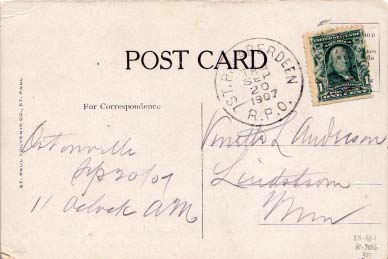 POST CARD
ST. P. & ABERDEEN
SEP
20
1907
R.P.O.
For Correspondence
ST. PAUL SOUVENIR CO., ST. PAUL
Ortonville
Sep 20/07
11 Oclock AM
L Anderson
Lindstrom
Minn